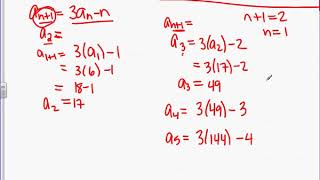 a_{n+1} = 3a_n - n
a_2 =
a_{1+1} = 3(a_1) - 1
= 3(6) - 1
= 18 - 1
a_2 = 17
a_{n+1} =
a_3 = 3(a_2) - 2
= 3(17) - 2
a_3 = 49
a_4 = 3(49) - 3
a_5 = 3(144) - 4
n+1 = 2
n = 1